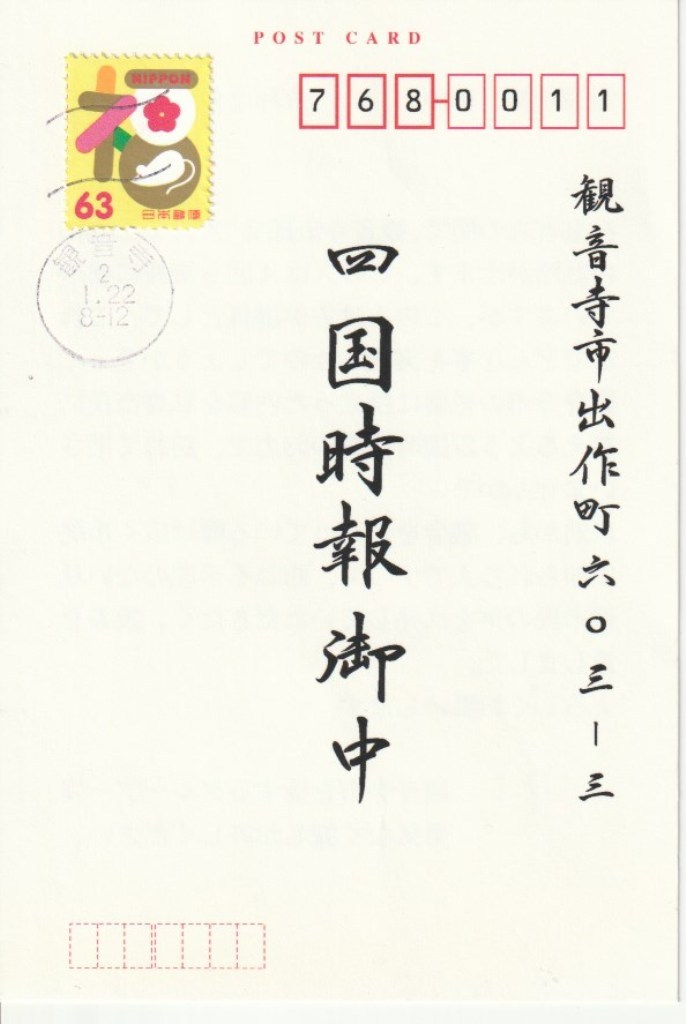 POST CARD
NIPPON
63
日本郵便
768-0011
観音寺
2
1.22
8-12
観音寺市出作町六〇三ー三
四国時報御中